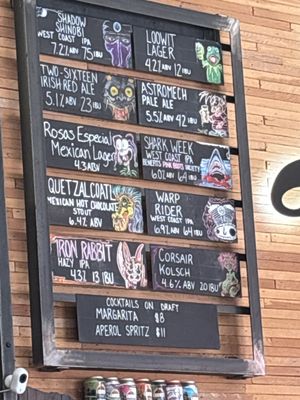 SHADOW
SHINOBI
WEST COAST IPA
7.2% ABV 75 IBU
LOOWIT
LAGER
4.2% ABV 12 IBU
TWO-SIXTEEN
IRISH RED ALE
5.1% ABV 23 IBU
ASTROMECH
PALE ALE
5.5% ABV 42 IBU
ROSAS ESPECIAL
MEXICAN LAGER
4.3 ABV
SHARK WEEK
WEST COAST IPA
BENEFITS PINK BOOTS SOCIETY
6.02 ABV 64 IBU
QUETZALCOATL
MEXICAN HOT CHOCOLATE
STOUT
6.4% ABV
WARP
RIDER
WEST COAST IPA
6.9% ABV 64 IBU
IRON RABBIT
HAZY IPA
4.3% ABV 13 IBU
CORSAIR
KOLSCH
4.6% ABV 20 IBU
COCKTAILS ON DRAFT
MARGARITA $8
APEROL SPRITZ $11